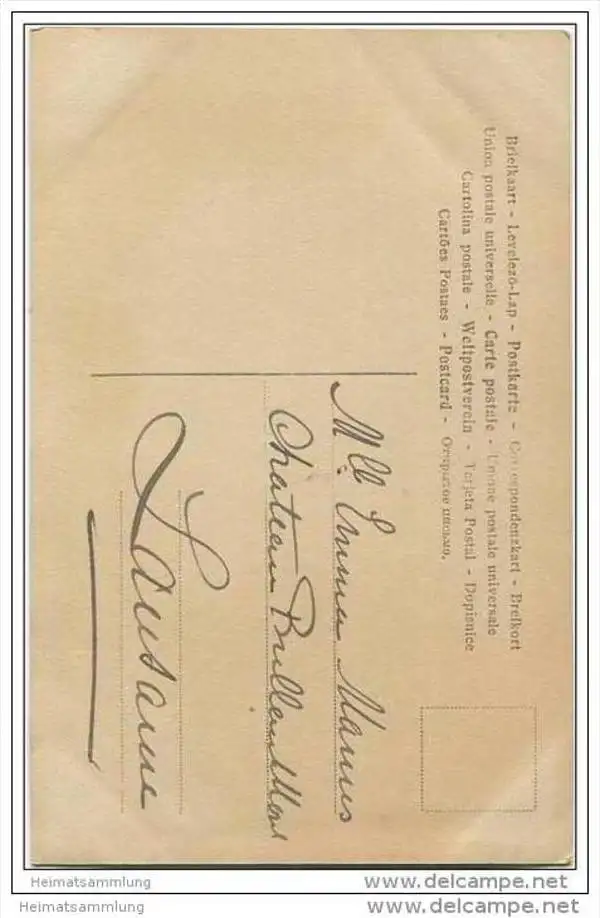 Briefkaart - Levelezö-Lap - Postkarte - Correspondenzkart - Brefkort
Union postale universelle - Carte postale - Unione postale universale
Cartolina postale - Weltpostverein - Tarjeta Postal - Dopisnice
Cartões Postaes - Postcard - Открытое письмо.
Mlle. Emma
Château
Lausanne
Heimatsammlung
www.delcampe.net
Heimatsammlung
www.delcampe.net